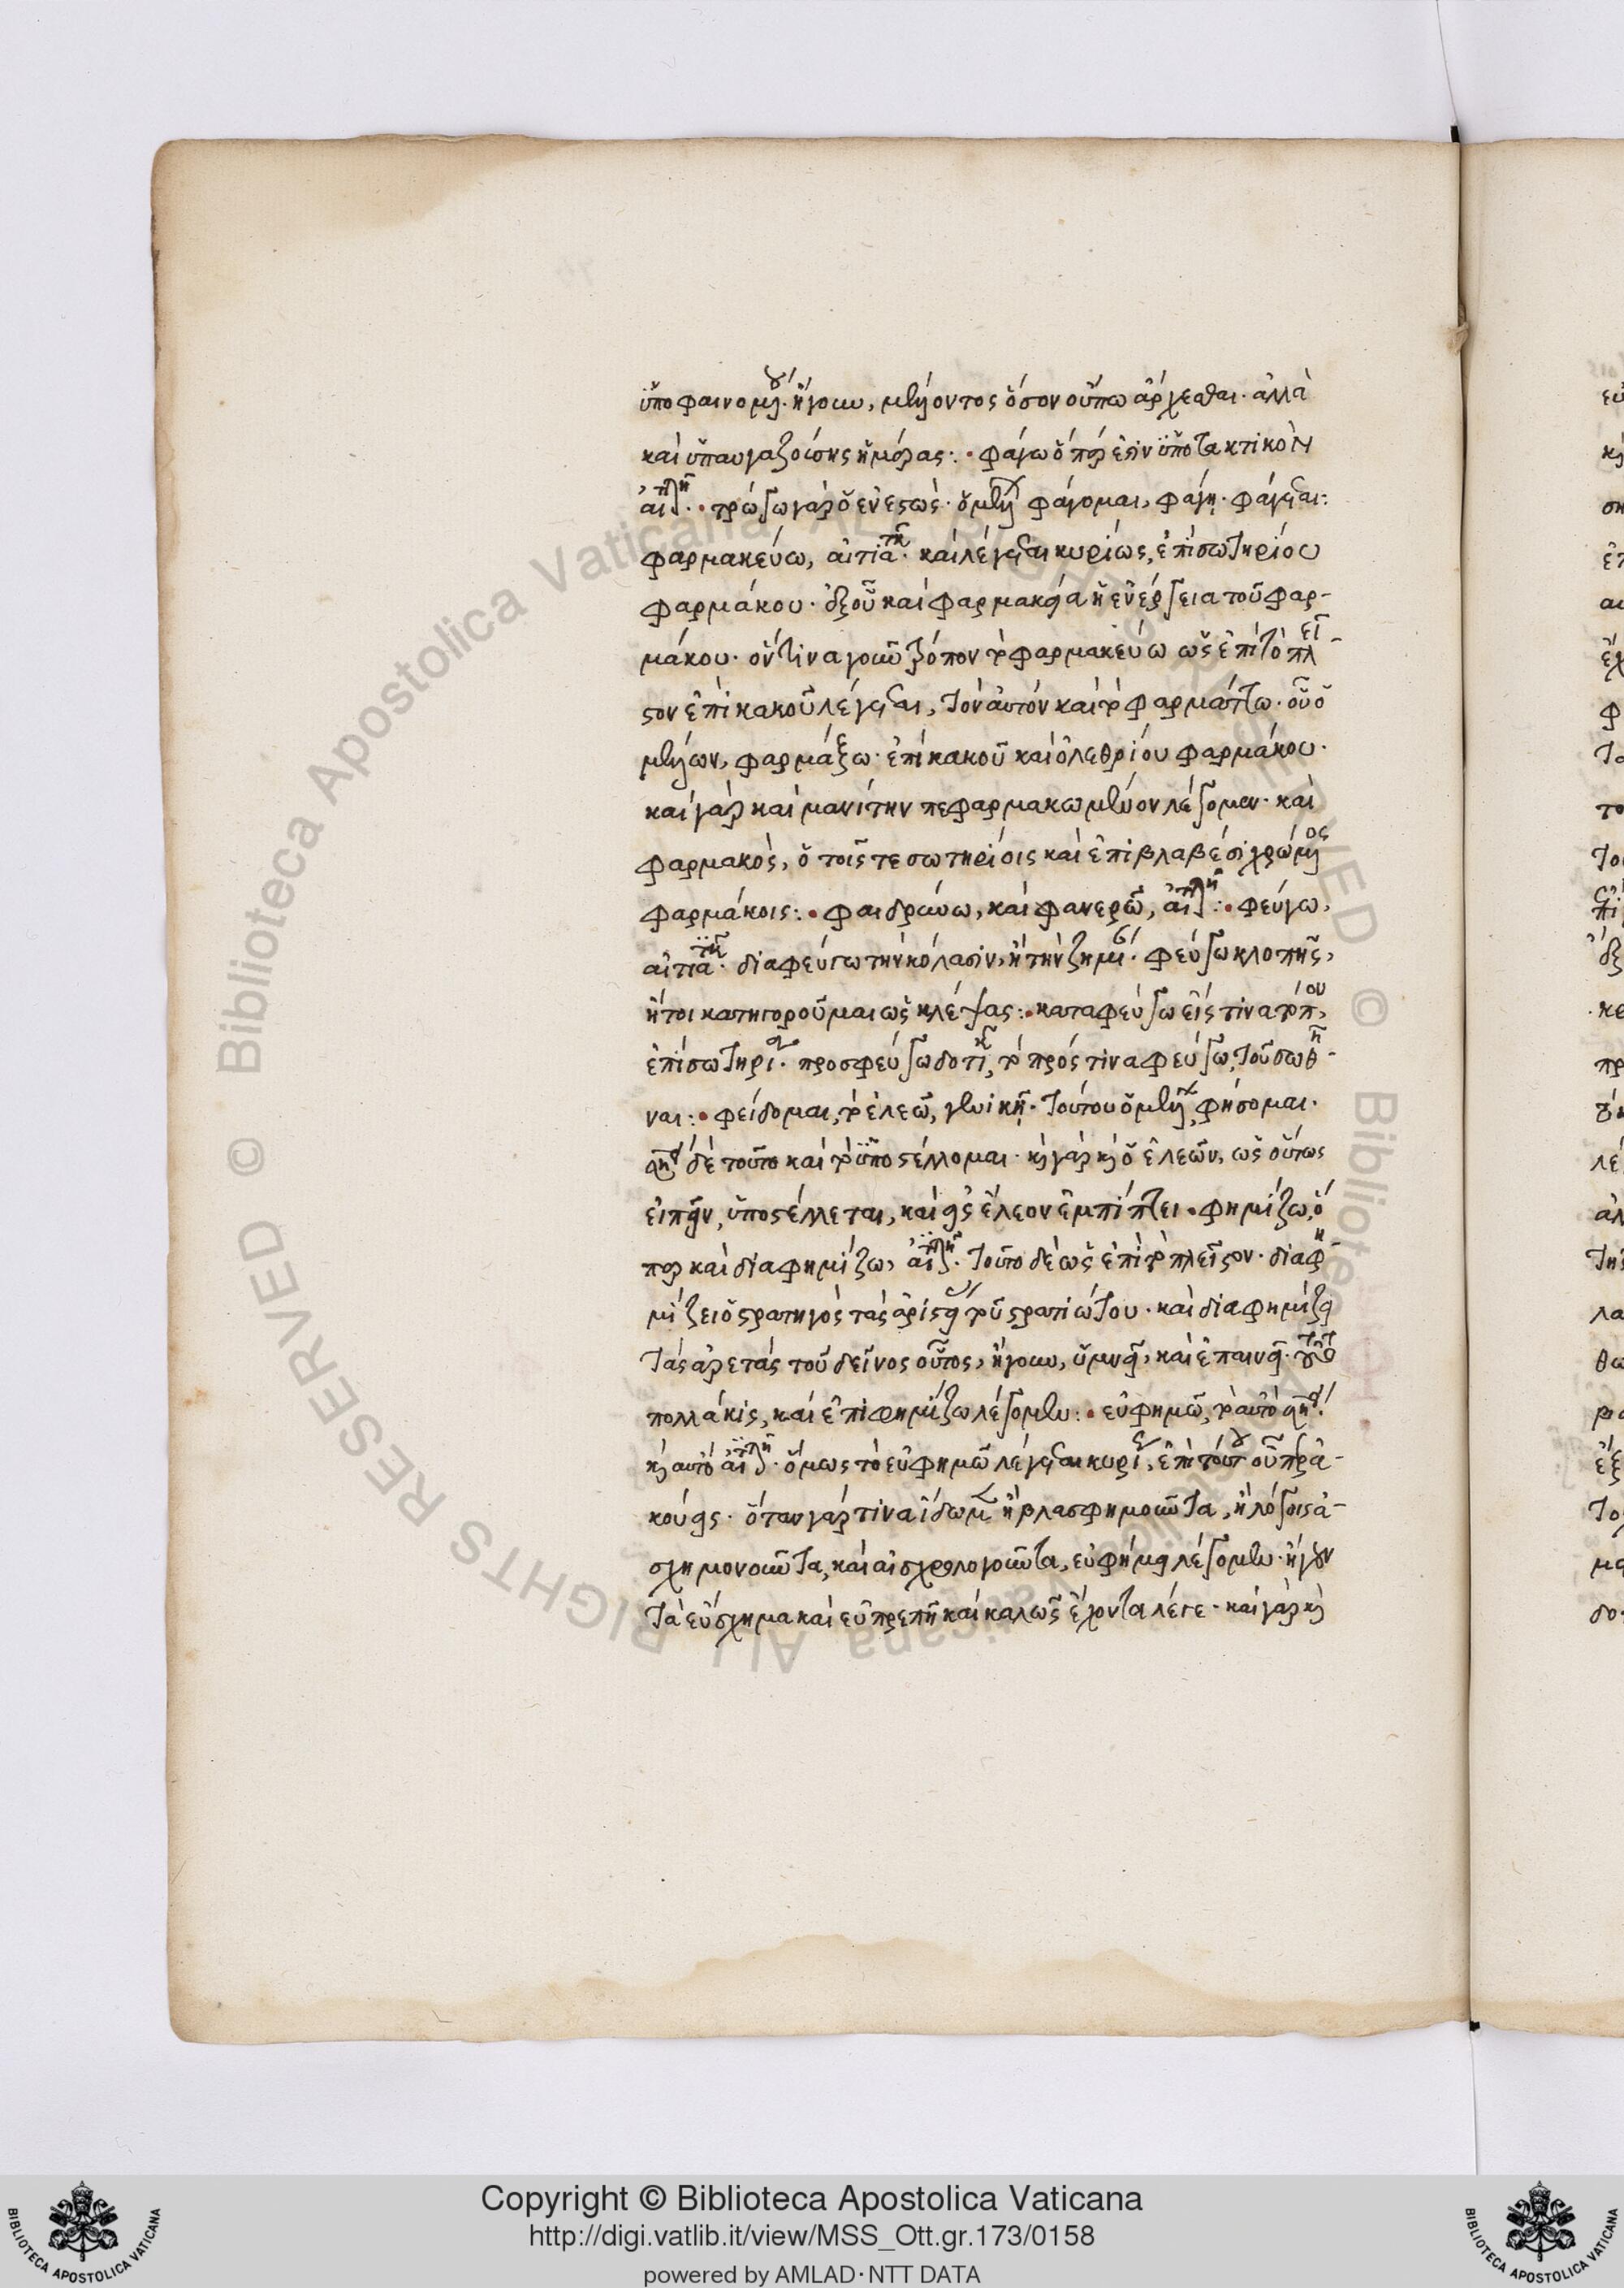 ὑποφαινομένου· ἤγουν, μέλλοντος ὅσον οὔπω ἄρχεσθαι· ἀλλὰ
καὶ ὑπαυγαζούσης ἡμέρας:· φάγω ὅπερ ἐστὶν ὑποτακτικὸν
αἰτιατικῇ· τρώγω γὰρ ὁ ἐνεστώς· ὁ μέλλων φάγομαι, φάγῃ· φάγεται:
φαρμακεύω, αἰτιατικῇ· καὶ λέγεται κυρίως, ἐπὶ σωτηρίου
φαρμάκου· ἐξ οὗ καὶ φαρμακεία ἡ ἐνέργεια τοῦ φαρ-
μάκου· ὅντινα γοῦν τρόπον τὸ φαρμακεύω ὡς ἐπὶ τὸ πλεῖ-
στον ἐπὶ κακοῦ λέγεται, τὸν αὐτὸν καὶ τὸ φαρμάττω· οὗ ὁ
μέλλων, φαρμάξω· ἐπὶ κακοῦ καὶ ὀλεθρίου φαρμάκου·
καὶ γὰρ καὶ μανίτην πεφαρμακωμένον λέγομεν· καὶ
φαρμακὸς, ὁ τοῖς τε σωτηρίοις καὶ ἐπιβλαβέσι χρώμενος
φαρμάκοις:· φαιδρύνω, καὶ φανερῶ, αἰτιατικῇ:· φεύγω,
αἰτιατικῇ· διαφεύγω τὴν κόλασιν, ἢ τὴν ζημίαν· φεύγω κλοπῆς,
ἤτοι κατηγοροῦμαι ὡς κλέψας:· καταφεύγω εἴς τινα τόπον,
ἐπὶ σωτηρίᾳ· προσφεύγω δοτικῇ, τὸ πρός τινα φεύγω, τοῦ σωθῆ-
ναι:· φείδομαι, τὸ ἐλεῶ, γενικῇ· τούτου ὁ μέλλων, φήσομαι·
δὲ τοῦτο καὶ τὸ ὑποστέλλομαι· καὶ γὰρ καὶ ὁ ἐλεῶν, ὡς οὕτως
εἰπεῖν, ὑποστέλλεται, καὶ εἰς ἔλεον ἐμπίπτει· φημίζω, ὅ
περ καὶ διαφημίζω, αἰτιατικῇ· τοῦτο δὲ ὡς ἐπὶ τὸ πλεῖστον· διαφη-
μίζει ὁ στρατηγὸς τὰς ἀριστείας τοῦ στρατιώτου· καὶ διαφημίζει
τὰς ἀρετὰς τοῦ δεῖνος οὗτος, ἤγουν, ὑμνεῖ, καὶ ἐπαινεῖ· τοῦτο
πολλάκις, καὶ ἐπιφημίζω λέγομεν:· εὐφημῶ, τὸ αὐτὸ
καὶ αὐτὸ αἰτιατικῇ· ὅμως τὸ εὐφημῶ λέγεται κυρίως, ἐπὶ τούτου οὗπερ ἀ-
κούεις· ὅταν γάρ τινα ἴδωμεν ἢ βλασφημοῦντα, ἢ λόγοις ἀ-
σχημονοῦντα, καὶ αἰσχρολογοῦντα, εὐφήμει λέγομεν· ἤγουν
τὰ εὔσχημα καὶ εὐπρεπῆ καὶ καλῶς ἔχοντα λέγε· καὶ γὰρ καὶ
Copyright © Biblioteca Apostolica Vaticana
http://digi.vatlib.it/view/MSS_Ott.gr.173/0158
powered by AMLAD·NTT DATA